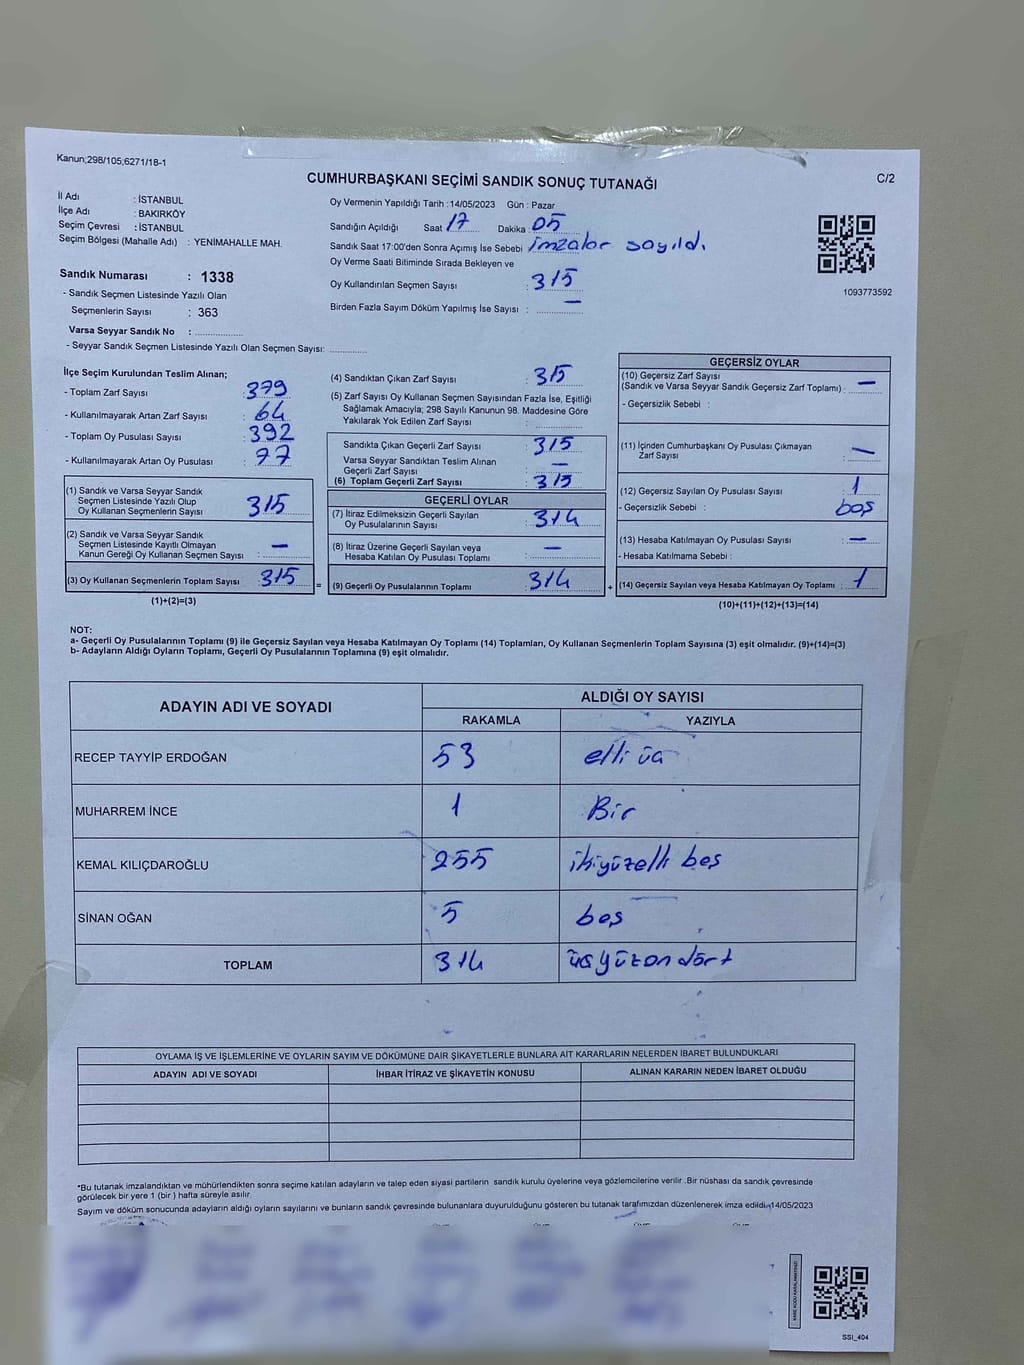 Kanun;298/105;6271/18-1
CUMHURBAŞKANI SEÇİMİ SANDIK SONUÇ TUTANAĞI
C/2
İl Adı : İSTANBUL
İlçe Adı : BAKIRKÖY
Seçim Çevresi : İSTANBUL
Seçim Bölgesi (Mahalle Adı) : YENİMAHALLE MAH.
Sandık Numarası : 1338
- Sandık Seçmen Listesinde Yazılı Olan
Seçmenlerin Sayısı : 363
Varsa Seyyar Sandık No :
- Seyyar Sandık Seçmen Listesinde Yazılı Olan Seçmen Sayısı:
Oy Vermenin Yapıldığı Tarih :14/05/2023 Gün : Pazar
Sandığın Açıldığı Saat 17 Dakika : 05
Sandık Saat 17:00'den Sonra Açımış İse Sebebi imzalar sayıldı.
Oy Verme Saati Bitiminde Sırada Bekleyen ve
Oy Kullandırılan Seçmen Sayısı : 315
Birden Fazla Sayım Döküm Yapılmış İse Sayısı : —
1093773592
İlçe Seçim Kurulundan Teslim Alınan;
- Toplam Zarf Sayısı : 379
- Kullanılmayarak Artan Zarf Sayısı : 64
- Toplam Oy Pusulası Sayısı : 392
- Kullanılmayarak Artan Oy Pusulası : 77
(1) Sandık ve Varsa Seyyar Sandık
Seçmen Listesinde Yazılı Olup
Oy Kullanan Seçmenlerin Sayısı : 315
(2) Sandık ve Varsa Seyyar Sandık
Seçmen Listesinde Kayıtlı Olmayan
Kanun Gereği Oy Kullanan Seçmen Sayısı : —
(3) Oy Kullanan Seçmenlerin Toplam Sayısı : 315 =
(1)+(2)=(3)
(4) Sandıktan Çıkan Zarf Sayısı : 315
(5) Zarf Sayısı Oy Kullanan Seçmen Sayısından Fazla İse, Eşitliği
Sağlamak Amacıyla; 298 Sayılı Kanunun 98. Maddesine Göre
Yakılarak Yok Edilen Zarf Sayısı :
Sandıkta Çıkan Geçerli Zarf Sayısı : 315
Varsa Seyyar Sandıktan Teslim Alınan
Geçerli Zarf Sayısı : —
(6) Toplam Geçerli Zarf Sayısı : 315
GEÇERLİ OYLAR
(7) İtiraz Edilmeksizin Geçerli Sayılan
Oy Pusulalarının Sayısı : 314
(8) İtiraz Üzerine Geçerli Sayılan veya
Hesaba Katılan Oy Pusulası Toplamı : —
(9) Geçerli Oy Pusulalarının Toplamı : 314 +
GEÇERSİZ OYLAR
(10) Geçersiz Zarf Sayısı
(Sandık ve Varsa Seyyar Sandık Geçersiz Zarf Toplamı) : —
- Geçersizlik Sebebi :
(11) İçinden Cumhurbaşkanı Oy Pusulası Çıkmayan
Zarf Sayısı : —
(12) Geçersiz Sayılan Oy Pusulası Sayısı : 1
- Geçersizlik Sebebi : boş
(13) Hesaba Katılmayan Oy Pusulası Sayısı : —
- Hesaba Katılmama Sebebi :
(14) Geçersiz Sayılan veya Hesaba Katılmayan Oy Toplamı : 1
(10)+(11)+(12)+(13)=(14)
NOT:
a- Geçerli Oy Pusulalarının Toplamı (9) ile Geçersiz Sayılan veya Hesaba Katılmayan Oy Toplamı (14) Toplamları, Oy Kullanan Seçmenlerin Toplam Sayısına (3) eşit olmalıdır. (9)+(14)=(3)
b- Adayların Aldığı Oyların Toplamı, Geçerli Oy Pusulalarının Toplamına (9) eşit olmalıdır.
ADAYIN ADI VE SOYADI ALDIĞI OY SAYISI
RAKAMLA YAZIYLA
RECEP TAYYİP ERDOĞAN 53 elli üç
MUHARREM İNCE 1 Bir
KEMAL KILIÇDAROĞLU 255 ikiyüzelli beş
SİNAN OĞAN 5 beş
TOPLAM 314 üçyüzon dört
OYLAMA İŞ VE İŞLEMLERİNE VE OYLARIN SAYIM VE DÖKÜMÜNE DAİR ŞİKAYETLERLE BUNLARA AİT KARARLARIN NELERDEN İBARET BULUNDUKLARI
ADAYIN ADI VE SOYADI İHBAR İTİRAZ VE ŞİKAYETİN KONUSU ALINAN KARARIN NEDEN İBARET OLDUĞU
*Bu tutanak imzalandıktan ve mühürlendikten sonra seçime katılan adayların ve talep eden siyasi partilerin sandık kurulu üyelerine veya gözlemcilerine verilir .Bir nüshası da sandık çevresinde
görülecek bir yere 1 (bir ) hafta süreyle asılır.
Sayım ve döküm sonucunda adayların aldığı oyların sayılarını ve bunların sandık çevresinde bulunanlara duyurulduğunu gösteren bu tutanak tarafımızdan düzenlenerek imza edildi.14/05/2023
SSI_404